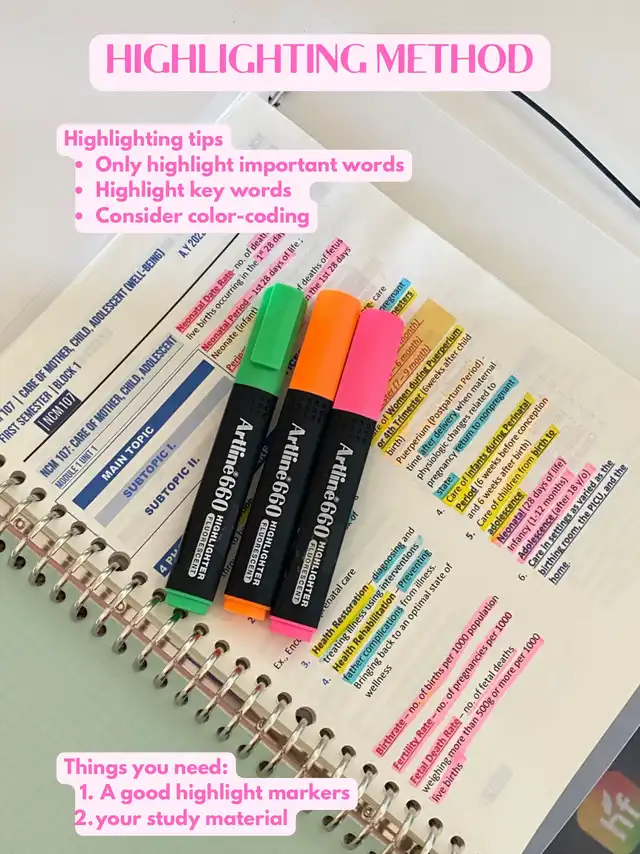 HIGHLIGHTING METHOD
Highlighting tips
• Only highlight important words
• Highlight key words
• Consider color-coding
107 | CARE OF MOTHER, CHILD, ADOLESCENT (WELL-BEING)
FIRST SEMESTER | BLOCK 1
NCM107
NCM 107: CARE OF MOTHER, CHILD, ADOLESCENT
MODULE 1 UNIT 1
MAIN TOPIC
SUBTOPIC I.
SUBTOPIC II.
Neonatal Date Rate- no. of
live births occurring in the 1st 28 days of life
Neonatal Period – 1st 28 days of life
Neonate (infant)
deaths of fetus
in the 1st 28
Artline 660
HIGHLIGHTER
FLUORESCENT
Artline 660
HIGHLIGHTER
FLUORESCENT
Artline 660
HIGHLIGHTER
FLUORESCENT
of Women during Puerperium
4th Trimester (6weeks after child
birth)
Puerperium (Postpartum Period) -
time after delivery when maternal
physiologic changes related to
pregnancy return to nonpregnant
state.
4. Care of infants during Perinatal
Period (6 weeks before conception
and 6 weeks after birth)
5. Care of children from birth to
Adolescence
Neonatal (28 days of life)
Infancy (1-12 months)
Adolescence (after 18 y/o)
6. Care in settings as varied as the
birthing room, the PICU, and the
home
3. Health Restoration – diagnosing and
treating illness using interventions
4. Health Rehabilitation – preventing
father complications from illness.
Bringing back to an optimal state of
wellness
Birthrate – no. of births per 1000 population
Fertility Rate – no. of pregnancies per 1000
Fetal Death Rate – no. of fetal deaths
weighing more than 500g or more per 1000
live births
Things you need:
1. A good highlight markers
2.your study material
hf